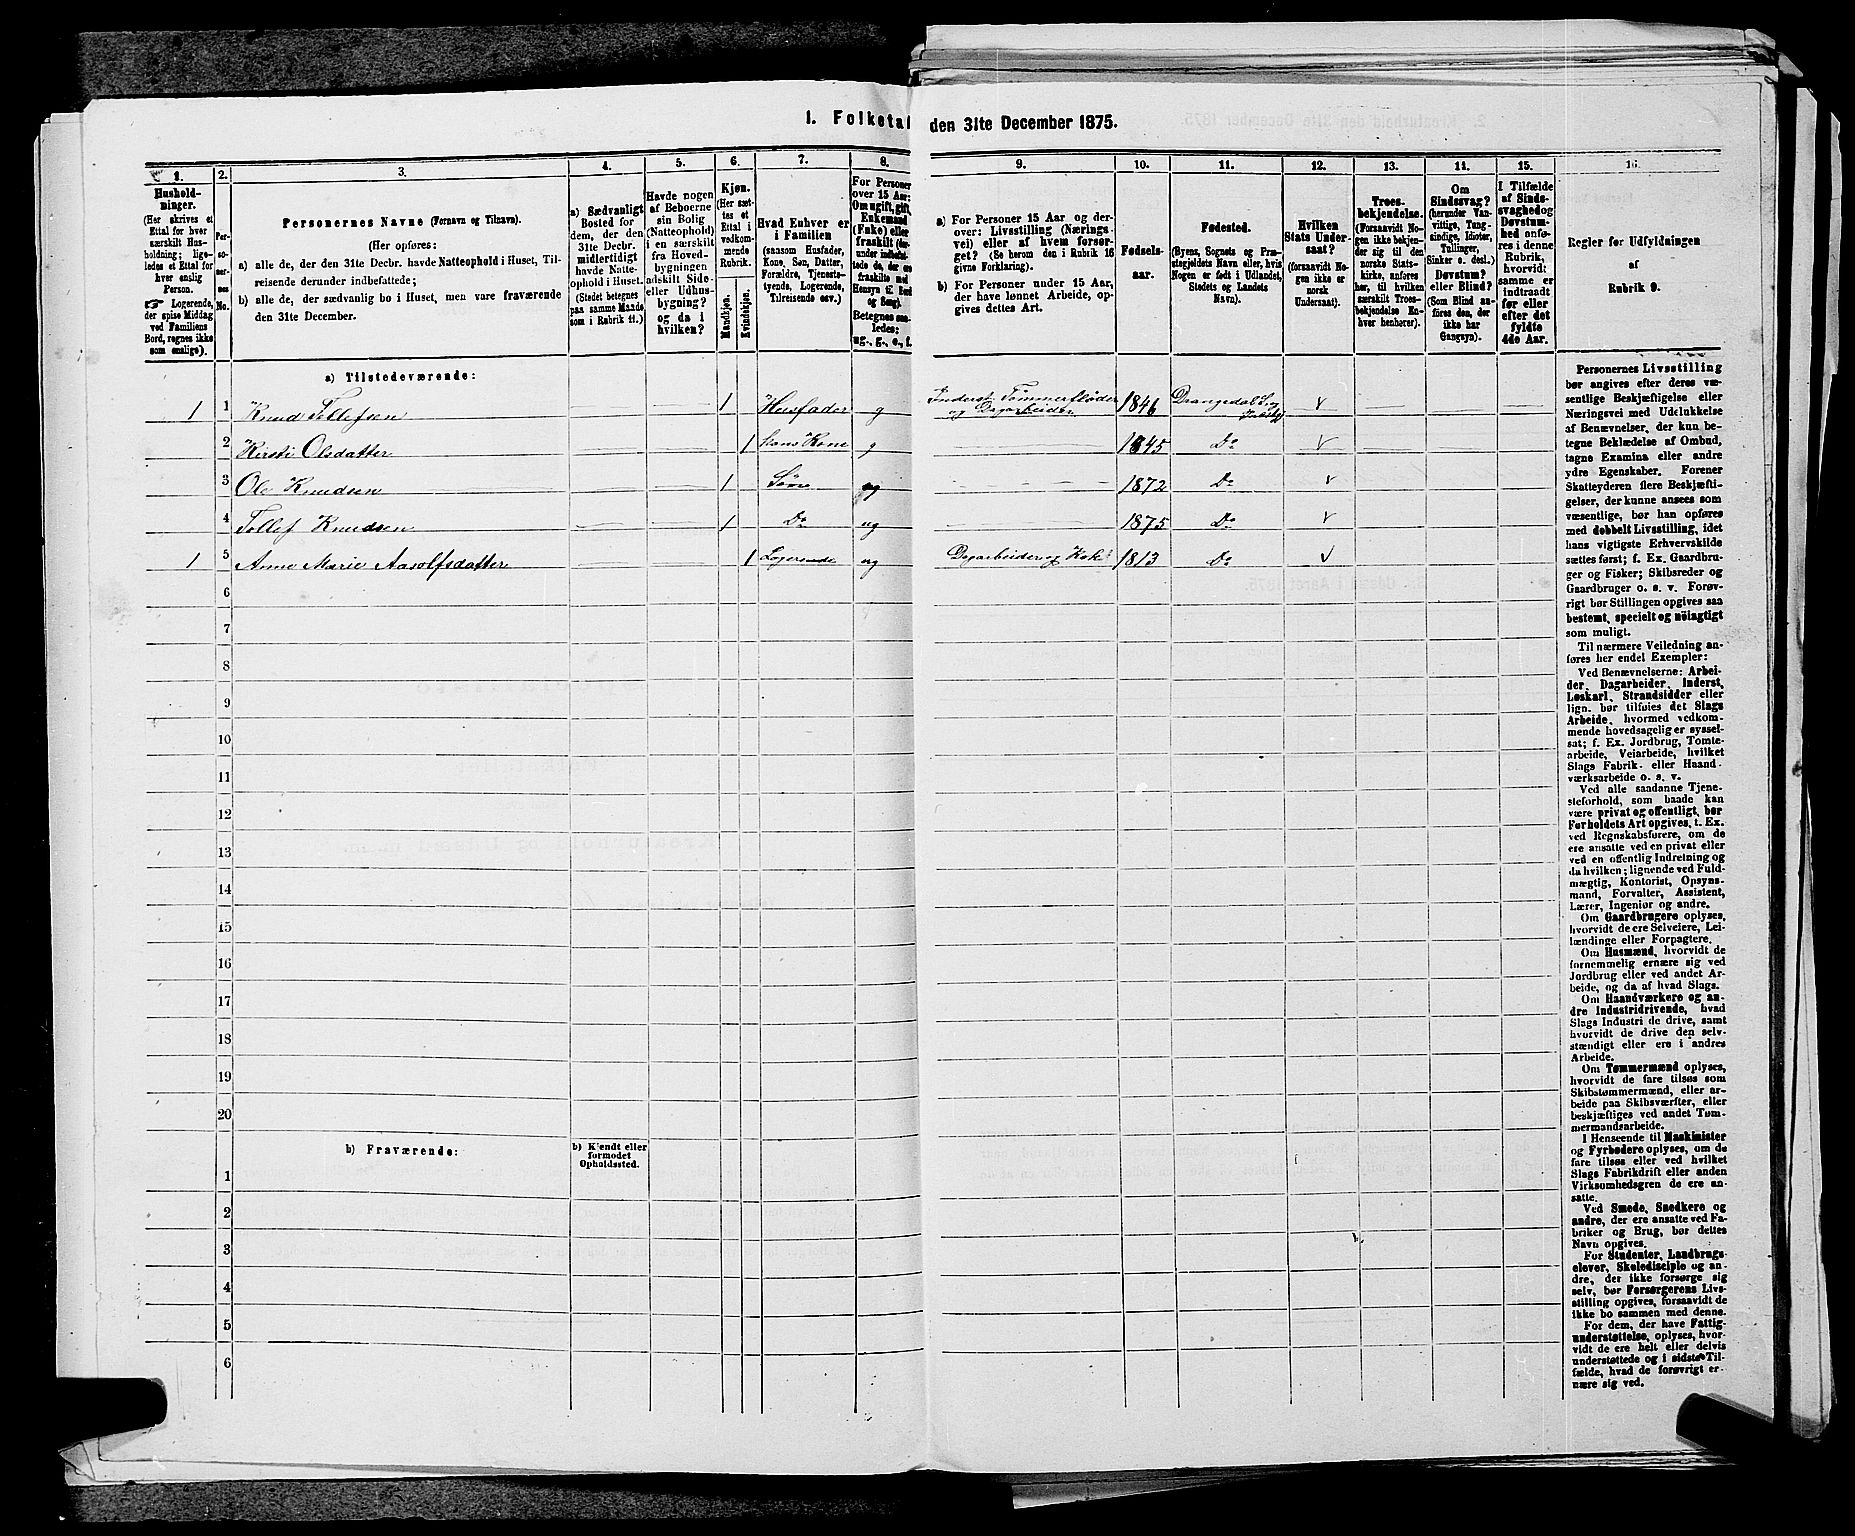 1. Folketal den 31te December 1875.
1. 2. 3. 4. 5. 6. 7. 8. 9. 10. 11. 12. 13. 14. 15. 16.
Hushold-
ninger.
(Her skrives et
Ettal for hver
særskilt Hus-
holdning; lige-
ledes et Ettal for
hver enslig
Person.
☞ Logerende,
der spise Middag
ved Familiens
Bord, regnes ikke
som enslige).
Per-
so-
ner-
nes
No.
Personernes Navne (Fornavn og Tilnavn).
(Her opføres:
a) alle de, der den 31te Decbr. havde Natteophold i Huset, Til-
reisende derunder indbefattede;
b) alle de, der sædvanlig bo i Huset, men vare fraværende
den 31te December.
a) Sædvanligt
Bosted for
dem, der den
31te Decbr.
midlertidigt
havde Natte-
ophold i Huset.
(Stedet betegnes
paa samme Maade
som i Rubrik 11.)
Havde nogen
af Beboerne
sin Bolig
(Natteophold)
i en særskilt
fra Hoved-
bygningen
adskilt Side-
eller Udhus-
bygning?
og da i
hvilken?
Kjøn.
(Her sæt-
tes et
Ettal i
vedkom-
mende
Rubrik.
Mandkjøn.
Kvindekjøn.
Hvad Enhver er
i Familien
(saasom Husfader,
Kone, Søn, Datter,
Forældre, Tjeneste-
tyende, Logerende,
Tilreisende osv.)
For Personer
over 15 Aar:
Om ugift, gift,
Enkemand
(Enke) eller
fraskilt (der-
under indbefat-
tede de, der ere
fraskilte med
Hensyn til Bord
og Seng).
Betegnes saa-
ledes:
ug., g., e., f.
a) For Personer 15 Aar og der-
over: Livsstilling (Nærings-
vei) eller af hvem forsør-
get? (Se herom den i Rubrik 16
givne Forklaring).
b) For Personer under 15 Aar,
der have lønnet Arbeide, op-
gives dettes Art.
Fødsels-
aar.
Fødested.
(Byens, Sognets og Præ-
stegjeldets Navn eller, hvis
Nogen er født i Udlandet,
Stedets og Landets
Navn).
Hvilken
Stats Under-
saat?
(forsaavidt No-
gen ikke er
norsk
Undersaat).
Troes-
bekjendelse.
(Forsaavidt No-
gen ikke bekjen-
der sig til den
norske Stats-
kirke, anføres
her, til hvilken
særskilt Troes-
bekjendelse En-
hver henhører).
Om
Sindssvag?
(herunder Van-
vittige, Tung-
sindige, Idioter,
Tullinger,
Sinker o. desl.)
Døvstum?
eller Blind?
(Som Blind an-
føres den, der
ikke har
Gangsyn).
I Tilfælde
af Sinds-
svaghed og
Døvstum-
hed anfø-
res i denne
Rubrik,
hvorvidt
samme er
indtraadt
før eller
efter det
fyldte
4de Aar.
Regler for Udfyldningen
af
Rubrik 9.
a) Tilstedeværende:
1 1 Knud Tollefsen 1 Husfader g Inderst Tømmerfløder og Dagarbeider 1846 Drangedal
2 Kirsti Olsdatter 1 hans Kone g 1845 Do
3 Ole Knudsen 1 Søn ug 1872 Do
4 Tollef Knudsen 1 Do ug 1875 Do
1 5 Anne Marie Aasolfsdatter 1 Logerende ug Dagarbeider og 1813 Do
6
7
8
9
10
11
12
13
14
15
16
17
18
19
20
b) Fraværende:
b) Kjendt eller
formodet
Opholdssted.
1
2
3
4
5
6
Personernes Livsstilling
bør angives efter deres væ-
sentlige Beskjæftigelse eller
Næringsvei med Udelukkelse
af Benævnelser, der kun be-
tegne Beklædelse af Ombud,
tagne Examina eller andre
ydre Egenskaber. Forener
Skatteyderen flere Beskjæfti-
gelser, der kunne ansees som
væsentlige, bør han opføres
med dobbelt Livsstilling, idet
hans vigtigste Erhvervskilde
sættes først; f. Ex. Gaardbru-
ger og Fisker; Skibsreder og
Gaardbruger o. s. v. Forøv-
rigt bør Stillingen opgives saa
bestemt, specielt og nöiagtigt
som muligt.
Til nærmere Veiledning an-
føres her endel Exempler:
Ved Benævnelserne: Arbei-
der, Dagarbeider, Inderst,
Løskarl, Strandsidder eller
lign. bør tilføies det Slags
Arbeide, hvormed vedkom-
mende hovedsagelig er syssel-
sat; f. Ex. Jordbrug, Tomte-
arbeide, Veiarbeide, hvilket
Slags Fabrik- eller Haand-
værksarbeide o. s. v.
Ved alle saadanne Tjene-
steforhold, som baade kan
være privat og offentligt, bør
Forholdets Art opgives, t. Ex.
ved Regnskabsførere, om de
ere ansatte ved en privat eller
ved en offentlig Indretning og
da hvilken; lignende ved Fuld-
mægtig, Kontorist, Opsyns-
mand, Forvalter, Assistent,
Lærer, Ingeniør og andre.
Om Gaardbrugere oplyses,
hvorvidt de ere Selveiere, Lei-
lændinge eller Forpagtere.
Om Husmænd, hvorvidt de
fornemmelig ernære sig ved
Jordbrug eller ved andet Ar-
beide, og da af hvad Slags.
Om Haandværkere og an-
dre Industridrivende, hvad
Slags Industri de drive, samt
hvorvidt de drive den selv-
stændigt eller ere i andres
Arbeide.
Om Tømmermænd oplyses,
hvorvidt de fare tilsøs som
Skibstømmermænd, eller ar-
beide paa Skibsværfter, eller
beskjæftiges ved andet Tøm-
mermandsarbeide.
I Henseende til Maskinister
og Fyrbødere oplyses, om de
fare tilsøs eller ved hvilket
Slags Fabrikdrift eller anden
Virksomhedsgren de ere an-
satte.
Ved Smede, Snedkere og
andre, der ere ansatte ved Fa-
briker og Brug, bør dettes
Navn opgives.
For Studenter, Landbrugs-
elever, Skoledisciple og an-
dre, der ikke forsørge sig
selv, bør Forsørgerens Livs-
stilling opgives, forsaavidt de
ikke bo sammen med denne.
For dem, der have Fattig-
understøttelse, oplyses, hvor-
vidt de ere helt eller delvis
understøttede og i sidste Til-
fælde, hvad de forøvrigt er-
nære sig ved.